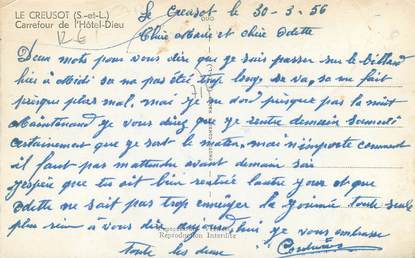 LE CREUSOT (S-et-L.)
Carrefour de l'Hôtel-Dieu
Le Creusot le 30-3-56
Chère Marie et chère Odette
Deux mots pour vous dire que je suis passer sur le billard
hier à Midi sa na pas été trop long sa va, sa me fait
presque plus mal, mai je ne dord presque pas la nuit
Maintenant je vous direz que je rentre demain samedi
certainement que ce sat le matin, mai n'importe comment
il faut pas mattendre avant demain soir
j'espère que tu ait bien rentrée lautre jour et que
Odette ne sait pas trop ennuyer la journée toute seule
plus rien à vous dire aujourd'hui je vous embrasse
toute les deux
Reproduction Interdite